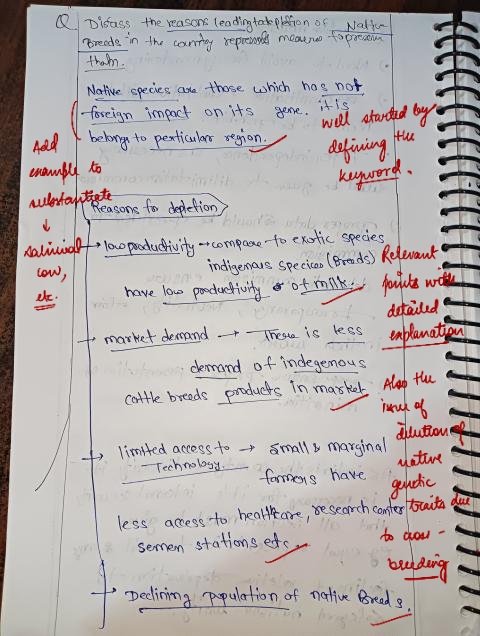 Q Discuss the reasons leading to depletion of Native
Breeds in the country represents measures to preserve
them.
Native species are those which has not
foreign impact on its gene. it is
belong to perticular region.
well started by
defining the
keyword.
Add
example to
substantiate
↓
Sahiwal
cow,
etc.
Reasons for depletion
→ low productivity → compare to exotic species
indigenous species (Breeds)
have low productivity of milk.
Relevant
points with
detailed
explanation
→ market demand → There is less
demand of indegenous
cattle breeds products in market
Also the
issue of
dilution of
native
genetic
traits due
to cross-
breeding
→ limited access to → small & marginal
Technology. farmers have
less access to healthcare, research center
semen stations etc.
→ Declining population of native Breeds.